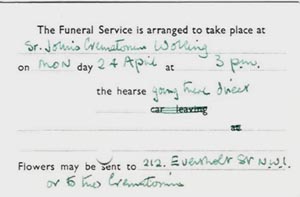 The Funeral Service is arranged to take place at
St. Johns Crematorium Woking
on MON day 24 April at 3 p.m.
the hearse going there direct
car leaving
at
Flowers may be sent to 212. Eversholt St N.W.1.
or to the Crematorium